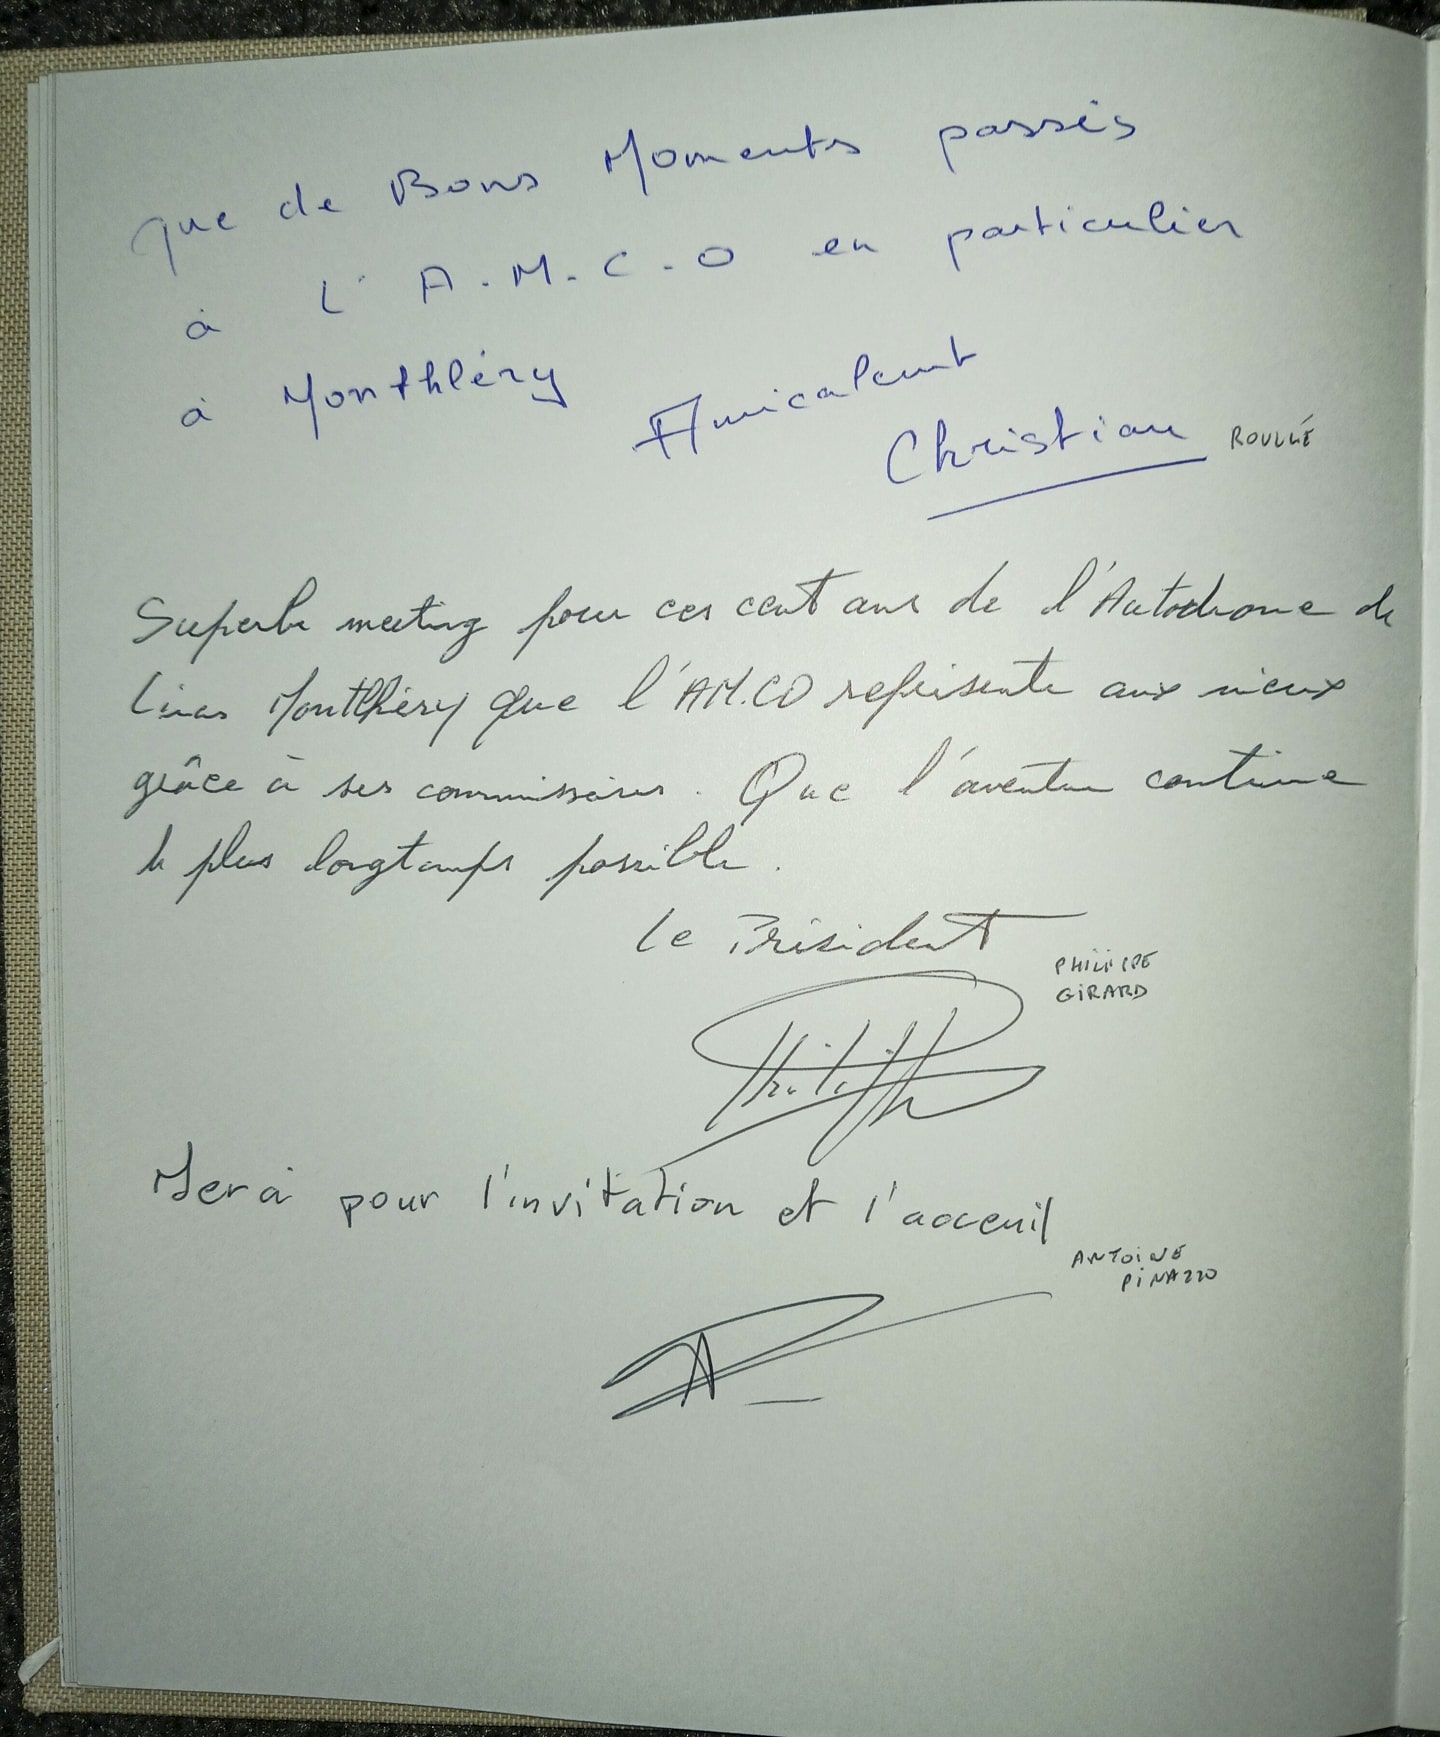 Que de Bons Moments passés
à L'A.M.C.O en particulier
à Monthléry
Amicalement
Christian ROULLÉ
Superbe meeting pour ces cent ans de l'Autodrome de
Linas Montlhéry que l'AM.CO représente aux mieux
grâce à ses commissaires. Que l'aventure continue
le plus longtemps possible.
Le Président
PHILIPPE
GIRARD
Philippe
Merci pour l'invitation et l'acceuil
ANTOINE
PINAZZO